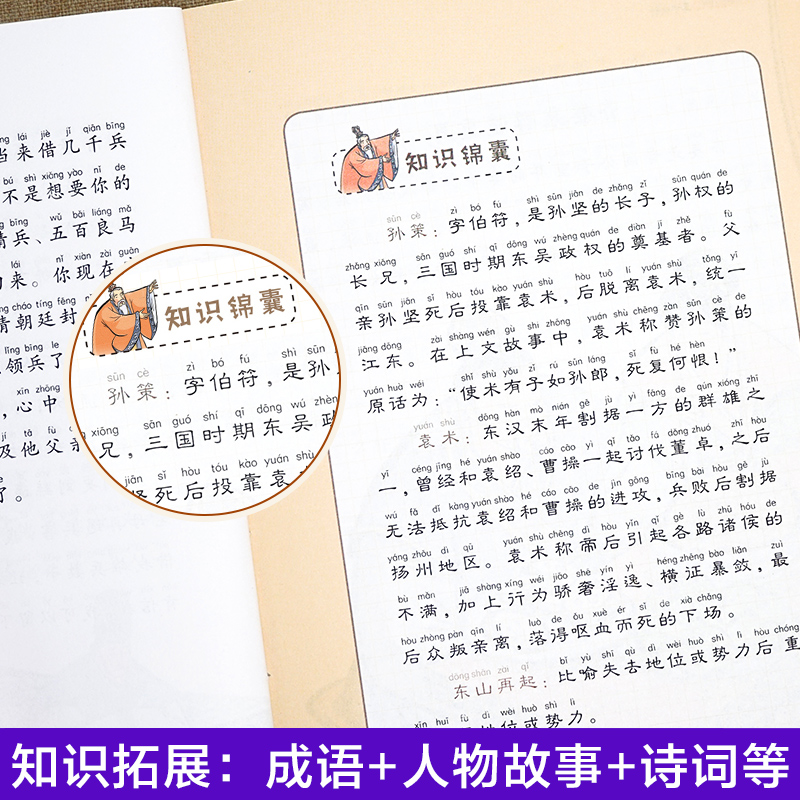 lái jiè jǐ qiān bīng
来借几千兵
bú shì xiǎng yào nǐ de
不是想要你的
bīng wǔ bǎi liáng mǎ
精兵、五百良马
lái nǐ xiàn zài guān
来。你现在
cháo tíng fēng
朝廷封
lǐng bīng le
领兵了
xīn zhōng
，心中
jí tā fù
及他父亲
了。
知识锦囊
sūn cè zì bó fú shì sūn
孙策：字伯符，是孙
xiōng sān guó shí qī dōng wú zhèng
兄，三国时期东吴政
jiān sǐ hòu tóu kào yuán
坚死后投靠袁
知识锦囊
sūn cè zì bó fú shì sūn jiān de zhǎng zǐ sūn quán de
孙策：字伯符，是孙坚的长子，孙权的
zhǎng xiōng sān guó shí qī dōng wú zhèng quán de diàn jī zhě fù
长兄，三国时期东吴政权的奠基者。父
qīn sūn jiān sǐ hòu tóu kào yuán shù hòu tuō lí yuán shù tǒng yī
亲孙坚死后投靠袁术，后脱离袁术，统一
jiāng dōng zài shàng wén gù shi zhōng yuán shù chēng zàn sūn cè de
江东。在上文故事中，袁术称赞孙策的
yuán huà wéi shǐ shù yǒu zǐ rú sūn láng sǐ fù hé hèn
原话为：“使术有子如孙郎，死复何恨！”
yuán shù dōng hàn mò nián gē jù yì fāng de qún xióng zhī
袁术：东汉末年割据一方的群雄之
yī céng jīng hé yuán shào cáo cāo yì qǐ tǎo fá dǒng zhuó zhī hòu
一，曾经和袁绍、曹操一起讨伐董卓，之后
wú fǎ dǐ kàng yuán shào hé cáo cāo de jìn gōng bīng bài hòu gē jù
无法抵抗袁绍和曹操的进攻，兵败后割据
yáng zhōu dì qū yuán shù chēng dì hòu yǐn qǐ gè lù zhū hóu de
扬州地区。袁术称帝后引起各路诸侯的
bù mǎn jiā shàng xíng wéi jiāo shē yín yì héng zhēng bào liǎn zuì
不满，加上行为骄奢淫逸、横征暴敛，最
hòu zhòng pàn qīn lí luò de ǒu xuè ér sǐ de xià chǎng
后众叛亲离，落得呕血而死的下场。
dōng shān zài qǐ bǐ yù shī qù dì wèi huò shì lì hòu chóng
东山再起：比喻失去地位或势力后重
xīn huī fù dì wèi huò shì lì
地位或势力。
知识拓展：成语+人物故事+诗词等